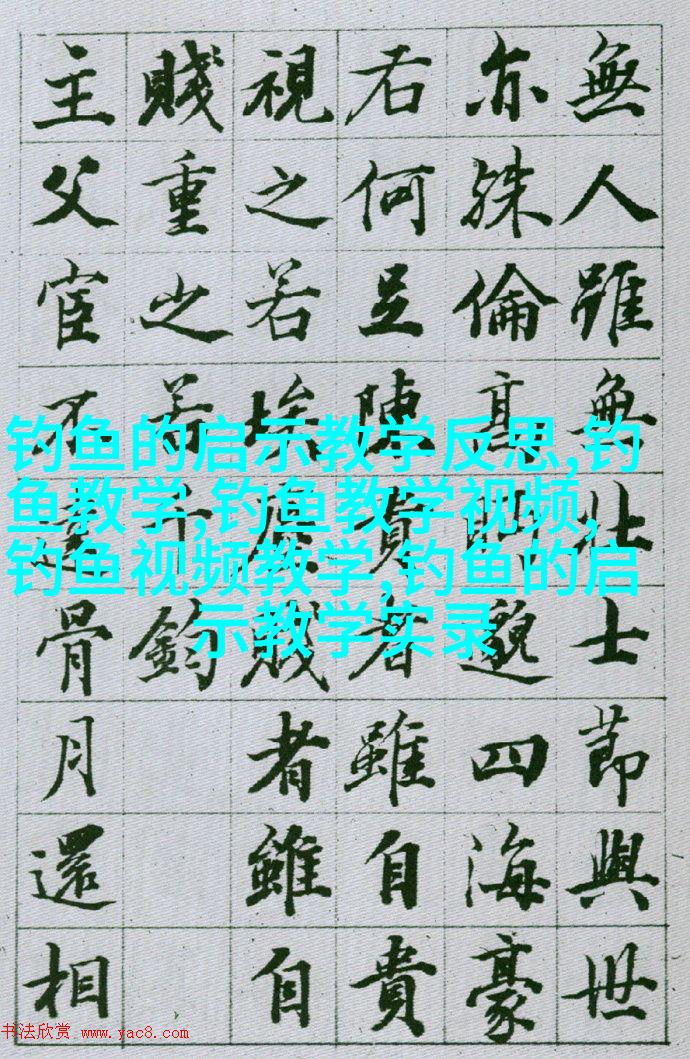 無人雖無壯士節與世
亦殊倫高邈四海豪
右何足陳貴者雖自貴
視之若埃塵賤者雖自
賤重之若千鈞
主父宦不達骨月還相
钓鱼的启示教学反思,钓
鱼教学,钓鱼教学视频,
钓鱼视频教学,钓鱼的启
示教学实录
书法欣赏 www.yac8.com